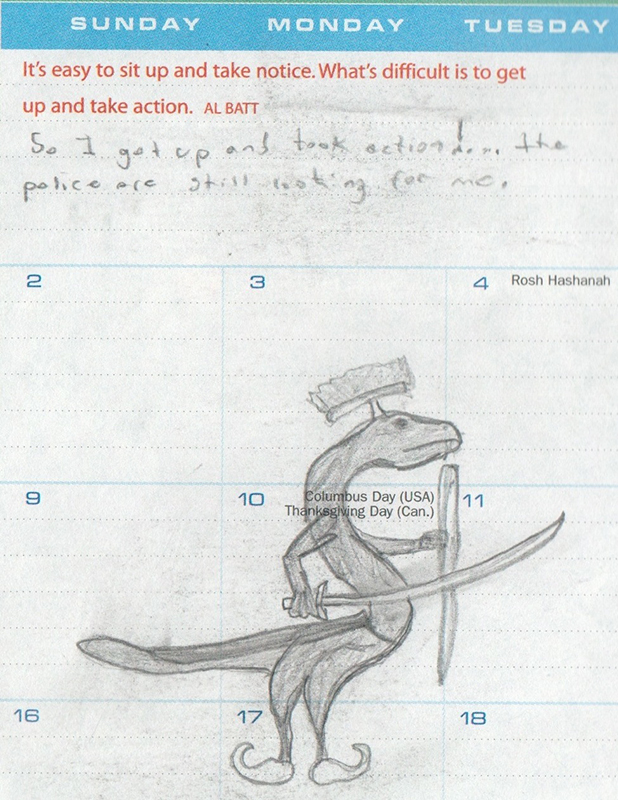 SUNDAY MONDAY TUESDAY
It's easy to sit up and take notice. What's difficult is to get
up and take action. AL BATT
So I got up and took action!... the
police are still looking for me.
2 3 4 Rosh Hashanah
9 10 Columbus Day (USA) 11
Thanksgiving Day (Can.)
16 17 18